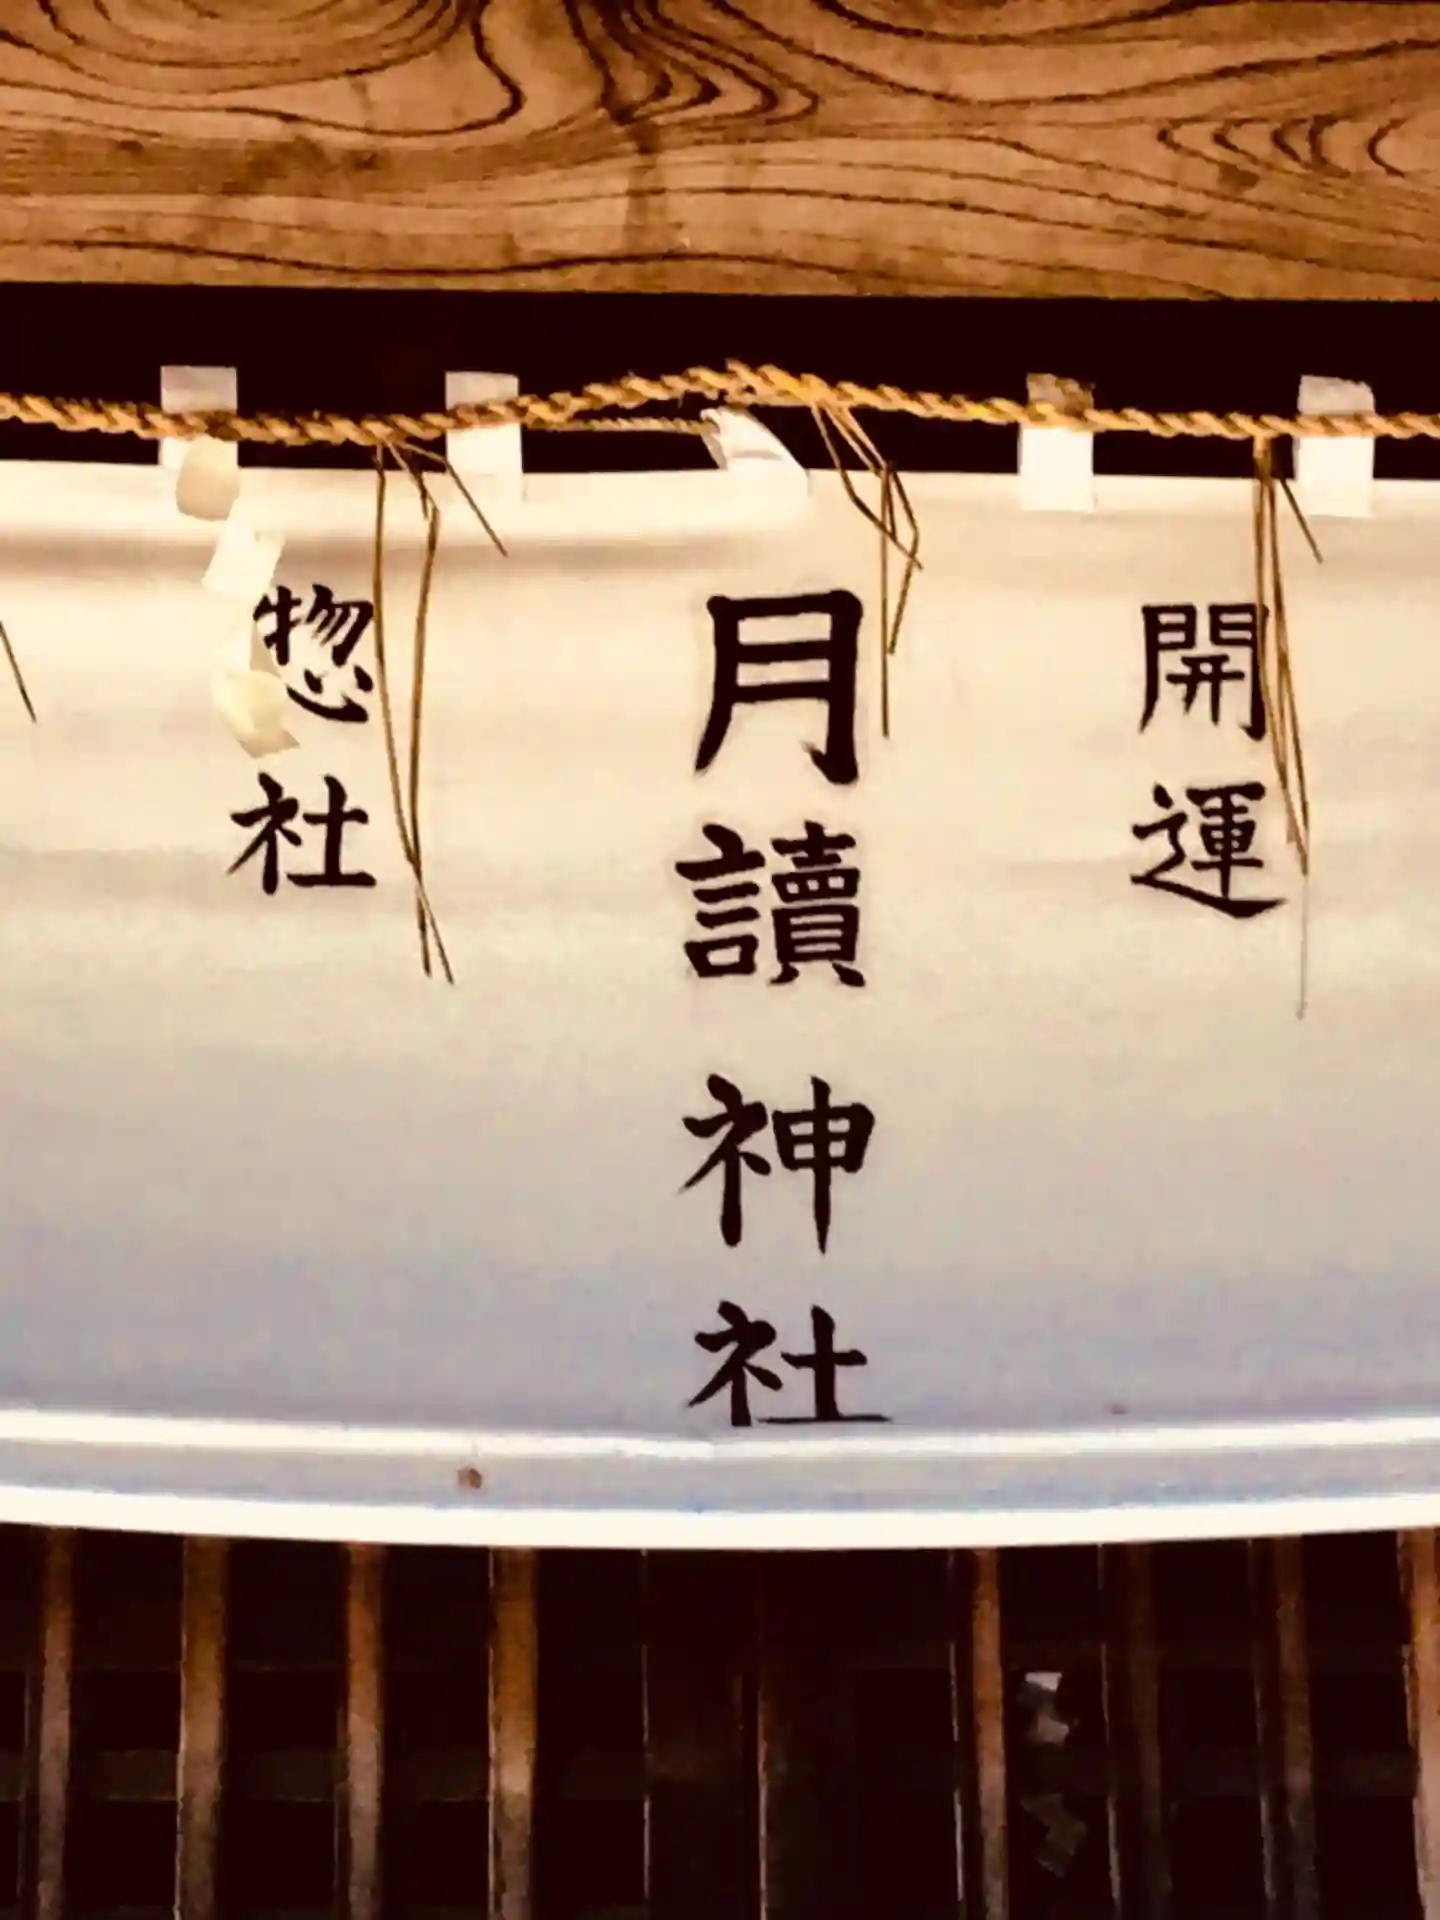 開運
月讀神社
惣社